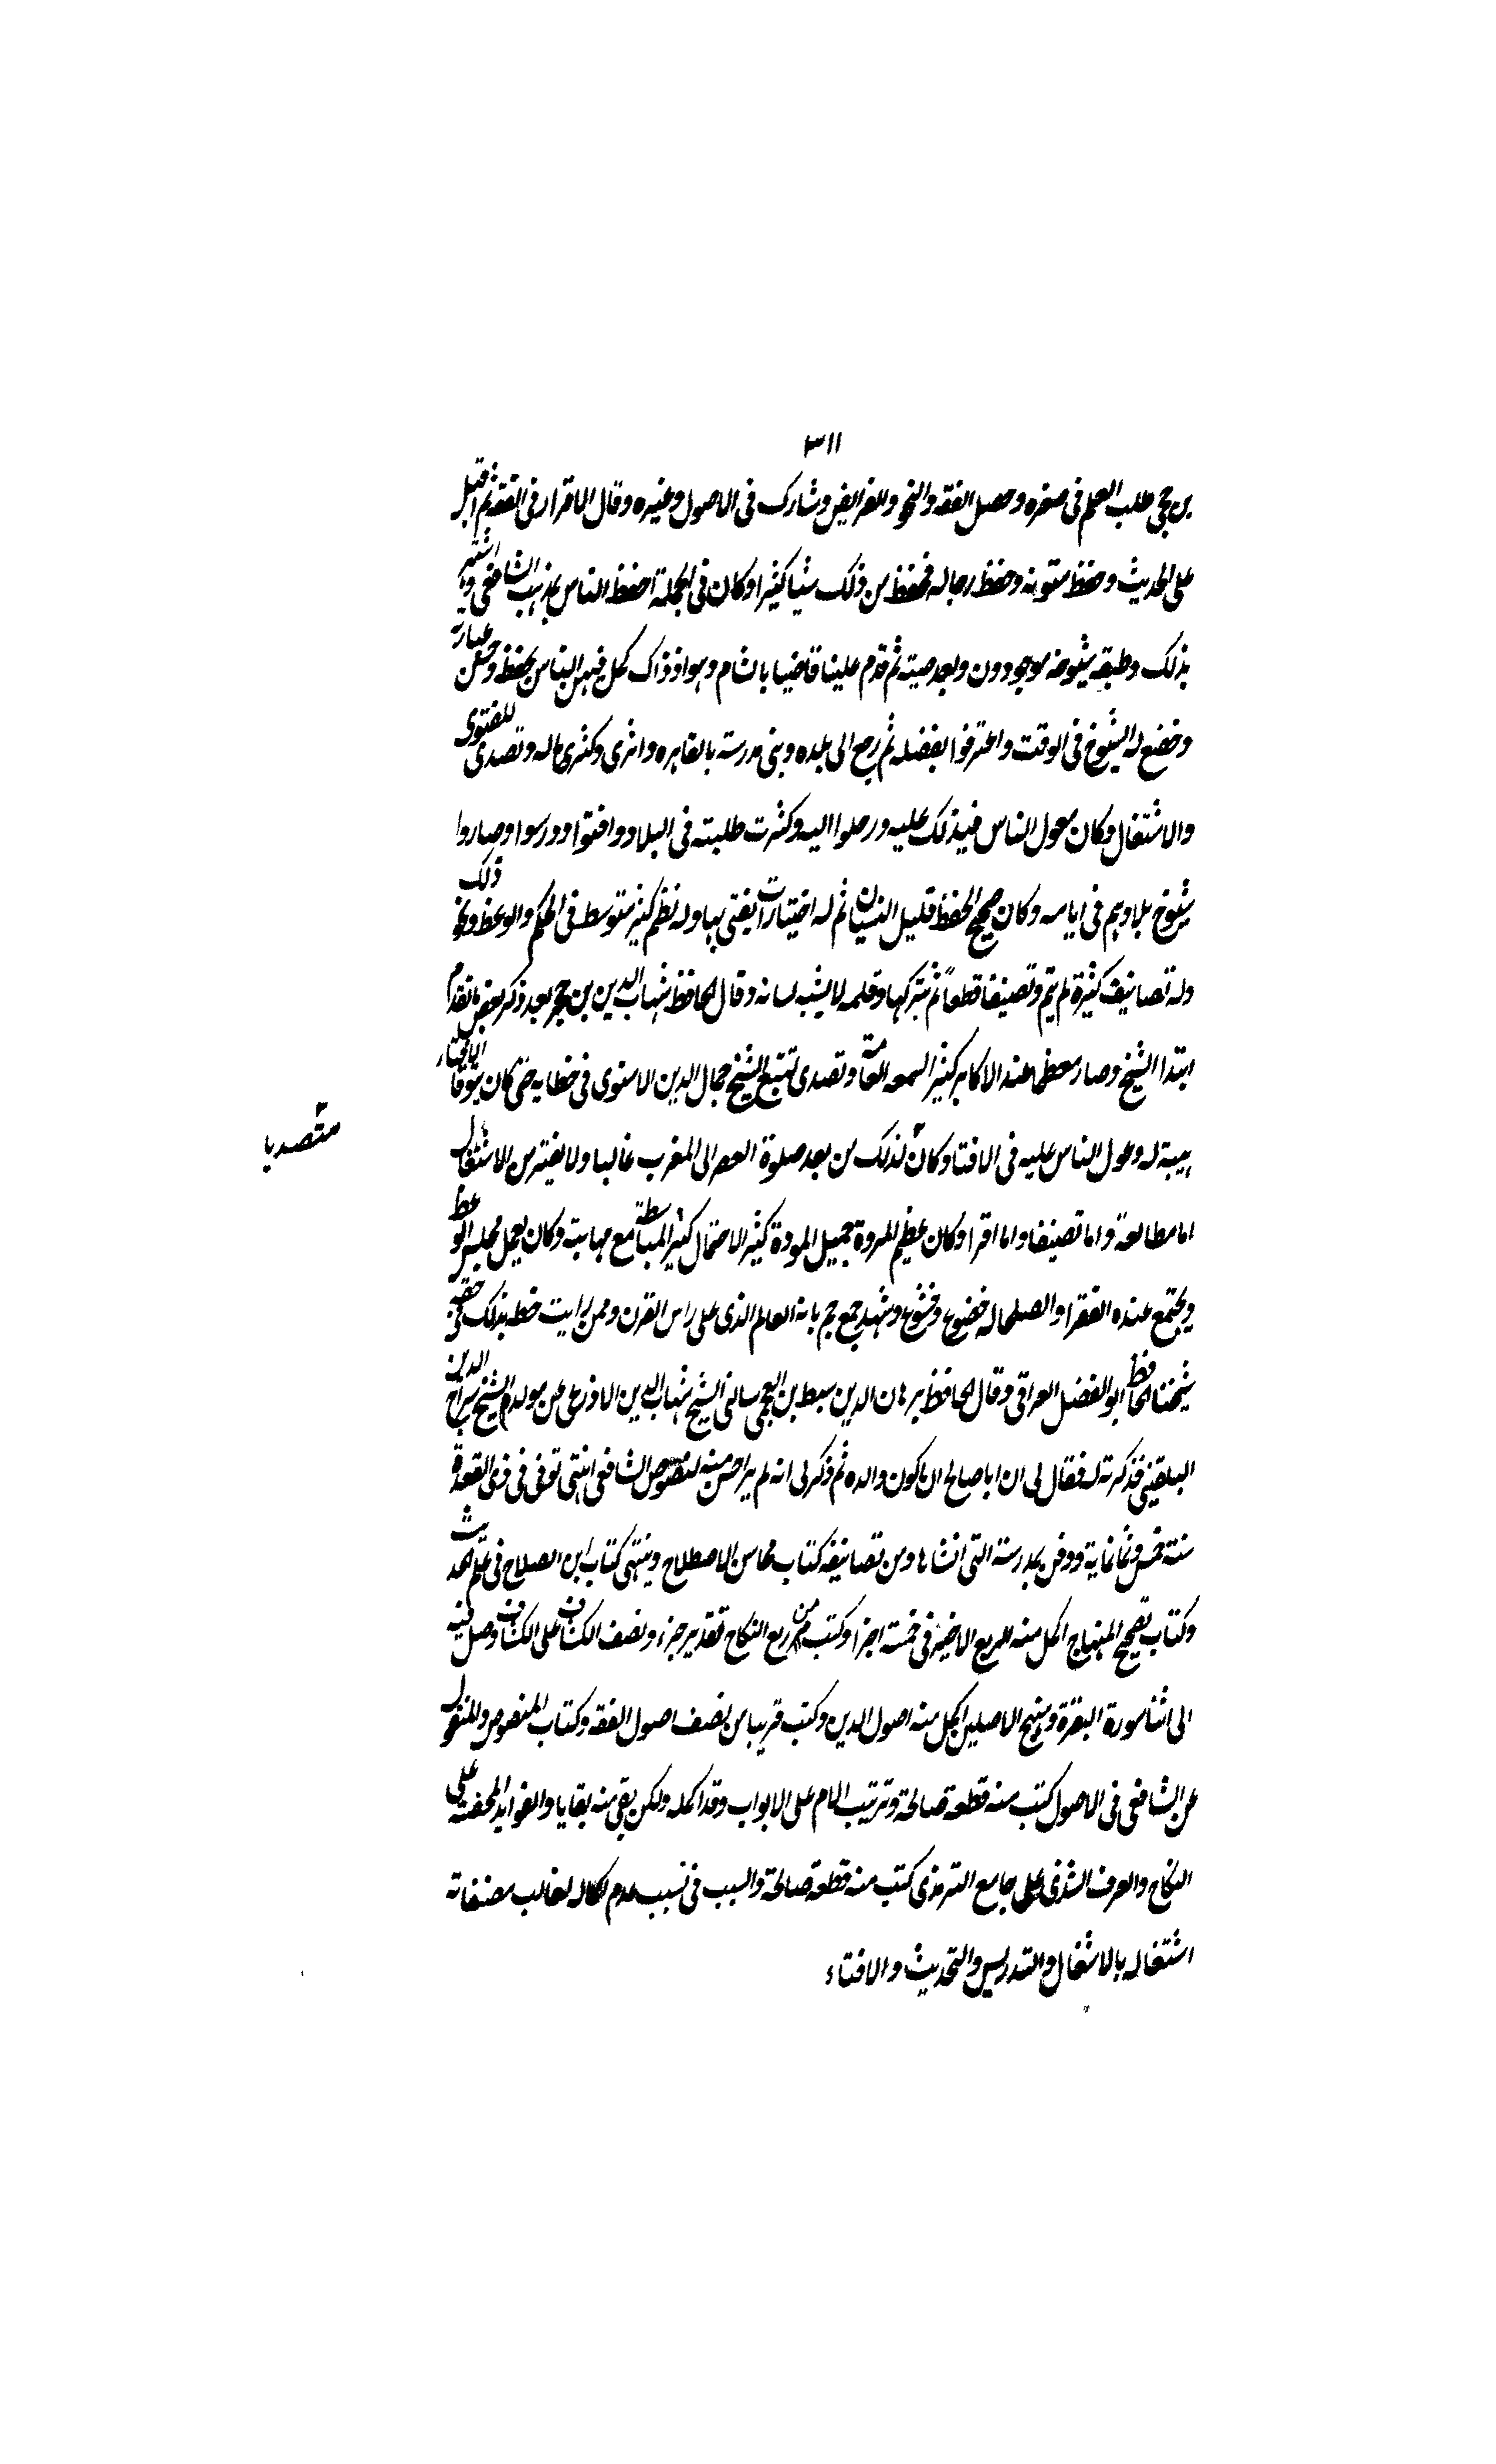 ٣١١
بن حجي طلب العلم في صغره وحصل الفقه والنحو والفرايض وشارك في الاصول وغيره وقال الاقران في الفقه ثم اقبل
على الحديث وحفظ متونه وحفظ رجاله فحفظ من ذلك شيا كثيرا وكان في الجملة احفظ الناس بمذهب الشافعي واشتهر
بذلك وطبقه شيوخه موجودون وبعد صيته ثم قدم علينا قاضيا بالشام وهو اذ ذاك كهل فبهر الناس بحفظه وحسن عبارته
وخضع له الشيوخ في الوقت واعترفوا بفضله ثم رجع الى بلده وبنى مدرسة بالقاهره واثرى وكثر ماله وتصدى للفتوى
والاشتغال وكان معول الناس في ذلك عليه ورحلوا اليه وكثرت طلبته في البلاد وافتوا ودرسوا وصاروا
شيوخ بلادهم في ايامه وكان صحيح الحفظ قليل النسيان ثم له اختيارات يفتي بها وله نظم كثير متوسط في الحكم والوعظ ونحو ذلك
وله تصانيف كثيرة لم يتم وتصنيفا قطعاً ثم يتركها وقلمه لا يشبه لسانه وقال الحافظ شهاب الدين بن حجر بعد ذكر بعض ما تقدم
ابتدا الشيخ وصار معظما عند الاكابر كثير السمعه العامة وتصدى لتتبع الشيخ جمال الدين الاسنوي في خطايه حتى كان يتوقا الافتاء
هيبة له وعول الناس عليه في الافتا وكان لذلك من بعد صلوة العصر الى المغرب غالبا ولا يفتر من الاشتغال
متصديا
اما مطالعة واما تصنيفا واما اقرا وكان عظيم المروة جميل المودة كثير الاحتمال كثير المباسطة مع مهابته وكان يعمل مجلس الوعظ
ويجتمع عنده الفقرا والصلحا له خضوع وخشوع وشهد جمع جم بانه العالم الذي على راس القرن وممن رايت خطه بذلك في حقه
شيخنا الحافظ ابو الفضل العراقي وقال الحافظ برهان الدين سبط بن العجمي سالني الشيخ شهاب الدين الاذرعي عن مولد الشيخ سراج الدين
البلقيني فذكرته له فقال لي ان اباصالح ان اكون والده ثم ذكر لي انه لم ير احسن منه لنصوص الشافعي انتهى توفي في ذي القعدة
سنة خمس وثمانماية ودفن بمدرسته التي انشاها ومن تصانيفه كتاب محاسن الاصطلاح وينتهي كتاب ابن الصلاح في علم الحديث
وكتاب تصحيح المنهاج اكمل منه الربع الاخير في خمسة اجزا وكتب من ربع النكاح تقدير جزء ونصف الكشاف على الكشاف وصل فيه
الى اثنا سورة البقرة ومنهج الاصلين اكمل منه اصول الدين وكتب قريبا من نصف اصول الفقه وكتاب المنصوص والمنقول
عن الشافعي في الاصول كتب منه قطعة صالحة وترتيب الام على الابواب وقد اكمله ولكن بقي منه بقايا والفوايد المحضة على
النكاح والعرف الشذي على جامع الترمذي كتب منه قطعة صالحة والسبب في تسبب عدم اكماله لغالب مصنفاته
اشتغاله بالاشغال والتدريس والتحديث والافتاء